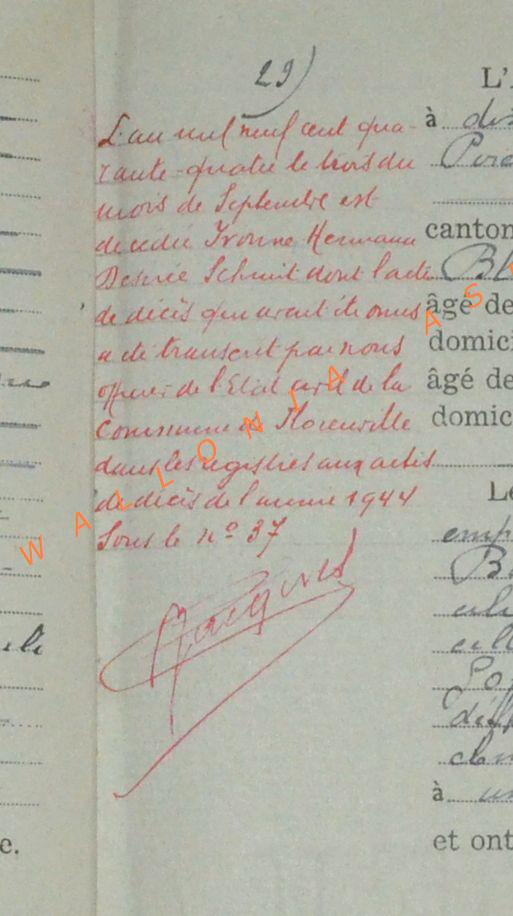 29)
L'an mil neuf cent qua-
rante-quatre le trois du
mois de Septembre est
décédée Yvonne Hermana
Desirée Schmit dont l'acte
de décès qui avait été omis
a été transcrit par nous
officier de l'Etat civil de la
Commune de Florenville
dans les registres aux actes
de décès de l'année 1944
Sous le nº 37
Jacques
WALLONIA AS
L'
à
canton
âgé de
domici
âgé de
domici
Le
à un
et ont
e.